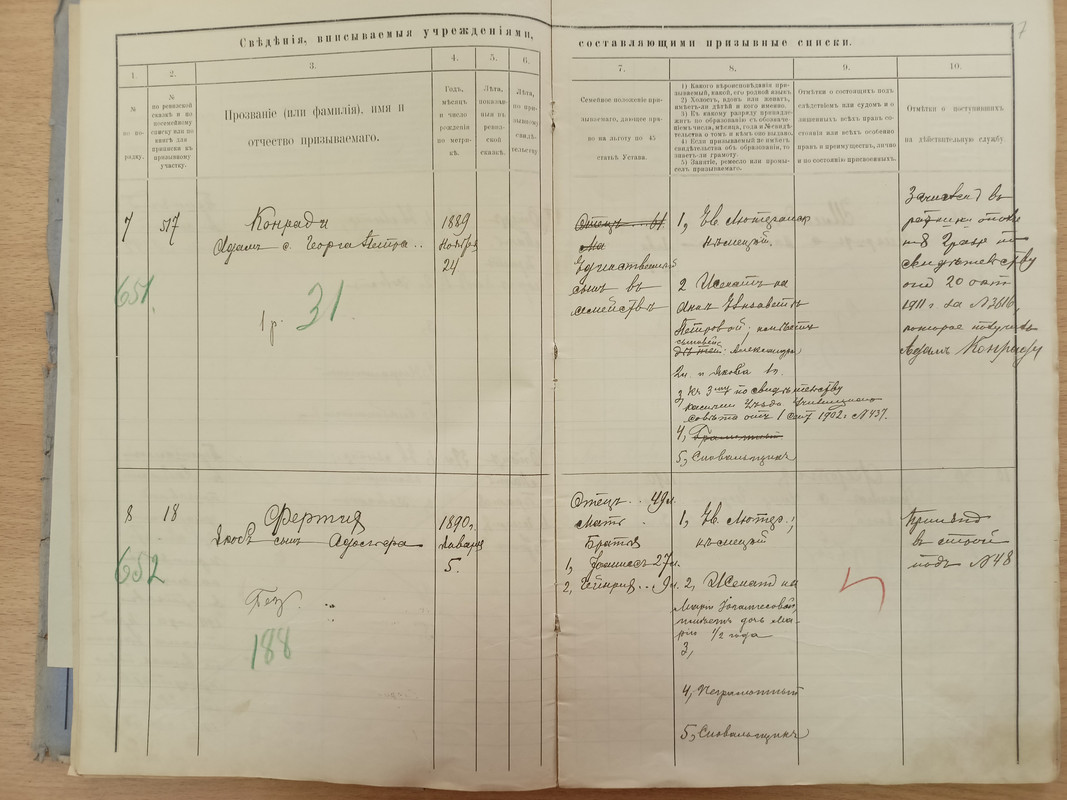 7
Свѣдѣнія, вписываемыя учрежденіями, составляющими призывные списки.
1.
2.
3.
4.
5.
6.
7.
8.
9.
10.
№
по по-
рядку.
№
по ревизской
сказкѣ и по
посемейному
списку или по
книгѣ для
приписки къ
призывному
участку.
Прозваніе (или фамилія), имя и
отчество призываемаго.
Годъ,
мѣсяцъ
и число
рожденія
по метри-
кѣ.
Лѣта,
показан-
ныя въ
ревиз-
ской
сказкѣ.
Лѣта,
по при-
зывному
свидѣ-
тельству
Семейное положеніе при-
зываемаго, дающее пра-
во на льготу по 45
статьѣ Устава.
1) Какого вѣроисповѣданія при-
зываемый, какой, его родной языкъ
2) Холостъ, вдовъ или женатъ,
имѣетъ-ли дѣтей и кого именно.
3) Къ какому разряду принадле-
житъ по образованію съ обозначе-
ніемъ числа, мѣсяца, года и №свидѣ-
тельства о томъ и кѣмъ оно выдано.
4) Если призываемый не имѣетъ
свидѣтельства объ образованіи, то
знаетъ-ли грамоту
5) Занятіе, ремесло или промы-
селъ призываемаго.
Отмѣтки о состоящихъ подъ
слѣдствіемъ или судомъ и о
лишенныхъ всѣхъ правъ со-
стоянія или всѣхъ особенно
правъ и преимуществъ, лично
и по состоянію присвоенныхъ.
Отмѣтки о поступившихъ
на дѣйствительную службу.
7
517
651
Конради
Адамъ с. Георга Петра..
1 р.
31
1889
Ноября
24
Отецъ
Единственный
сынъ въ
семействѣ
1, Ев. Лютеранск
нѣмецкой.
2 Женатъ на
Аннѣ Елизаветѣ
Петровой; имѣетъ
сыновей
Александра
2л. и Якова 1г.
3, Къ 3му по свидѣтельству
уѣзда Училищнаго
совѣта отъ 1 1902 г №437.
4, Грамотный
5, Сновальщикъ
Зачисленъ въ
ратники опол
разр по
свидѣтельству
отъ 20 окт
1911 г за № 3616,
которое получилъ
Адамъ Конради
8
18
652
Фертиг
Якобъ сынъ
Без
188
1890,
Января
5.
Отецъ . . 49л.
Мать .
Братья
1, 27л.
2, Гейнрих . . 9л.
1, Ев. Лютер.;
нѣмецкой
2, Женат на
Маріи
имѣетъ дочь Ма-
рію 1/2 года
3,
4, Неграмотный
5, Сновальщикъ
Принятъ
въ
подъ № 48